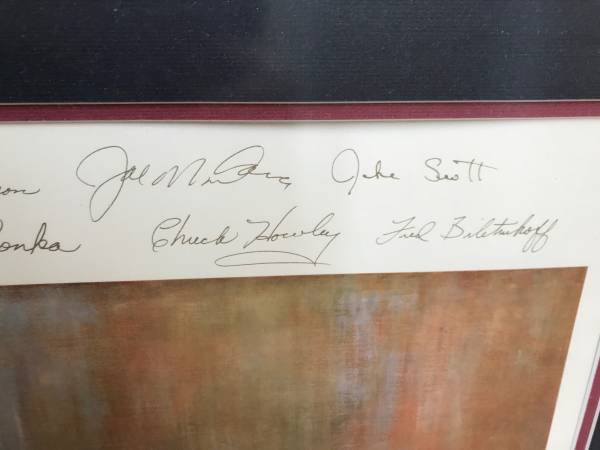 on Joe Montana Jake Scott
onka Chuck Howley Fred Biletnikoff